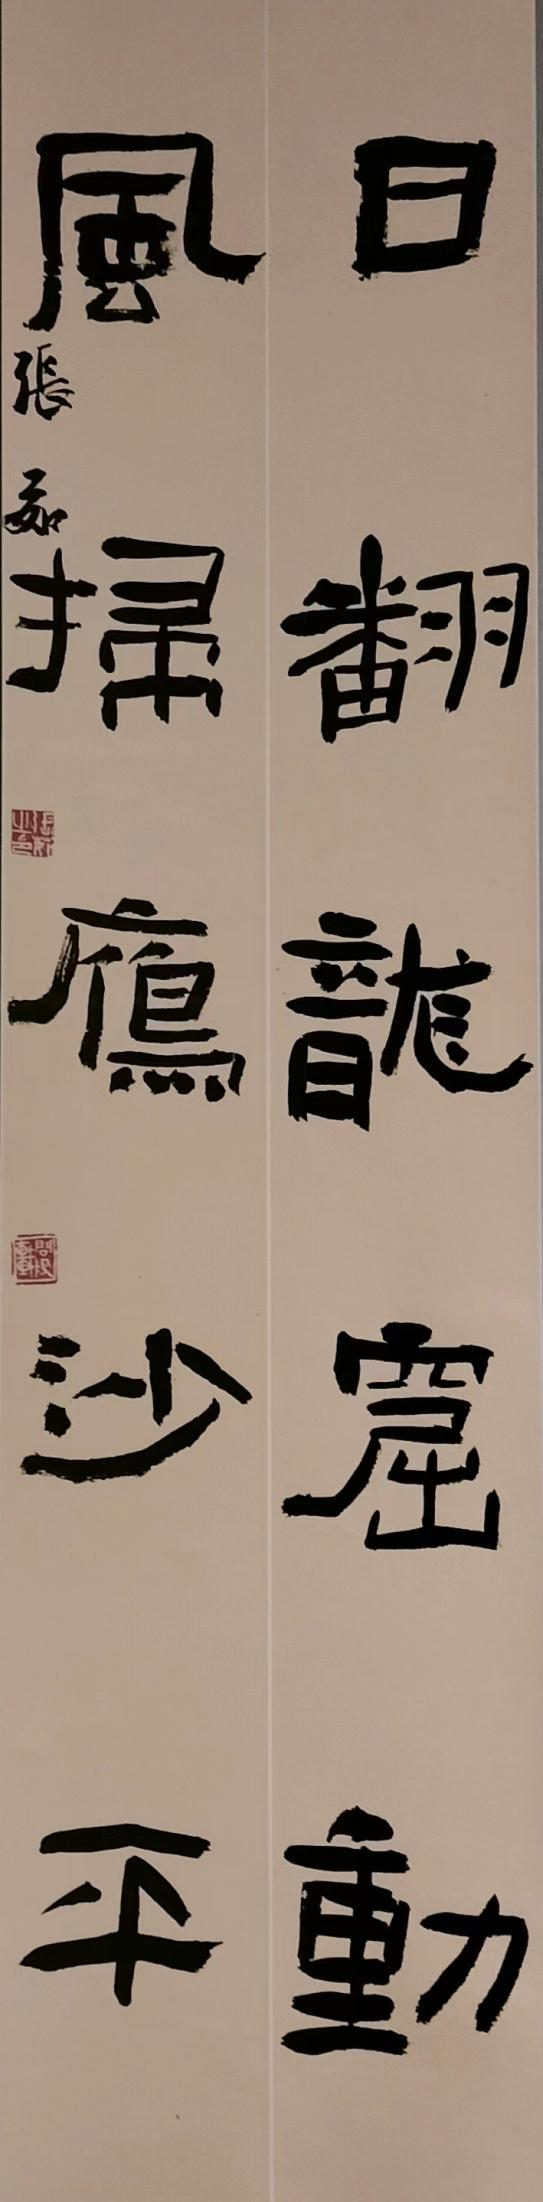 日翻龍窟動
風掃鴈沙平
張茹